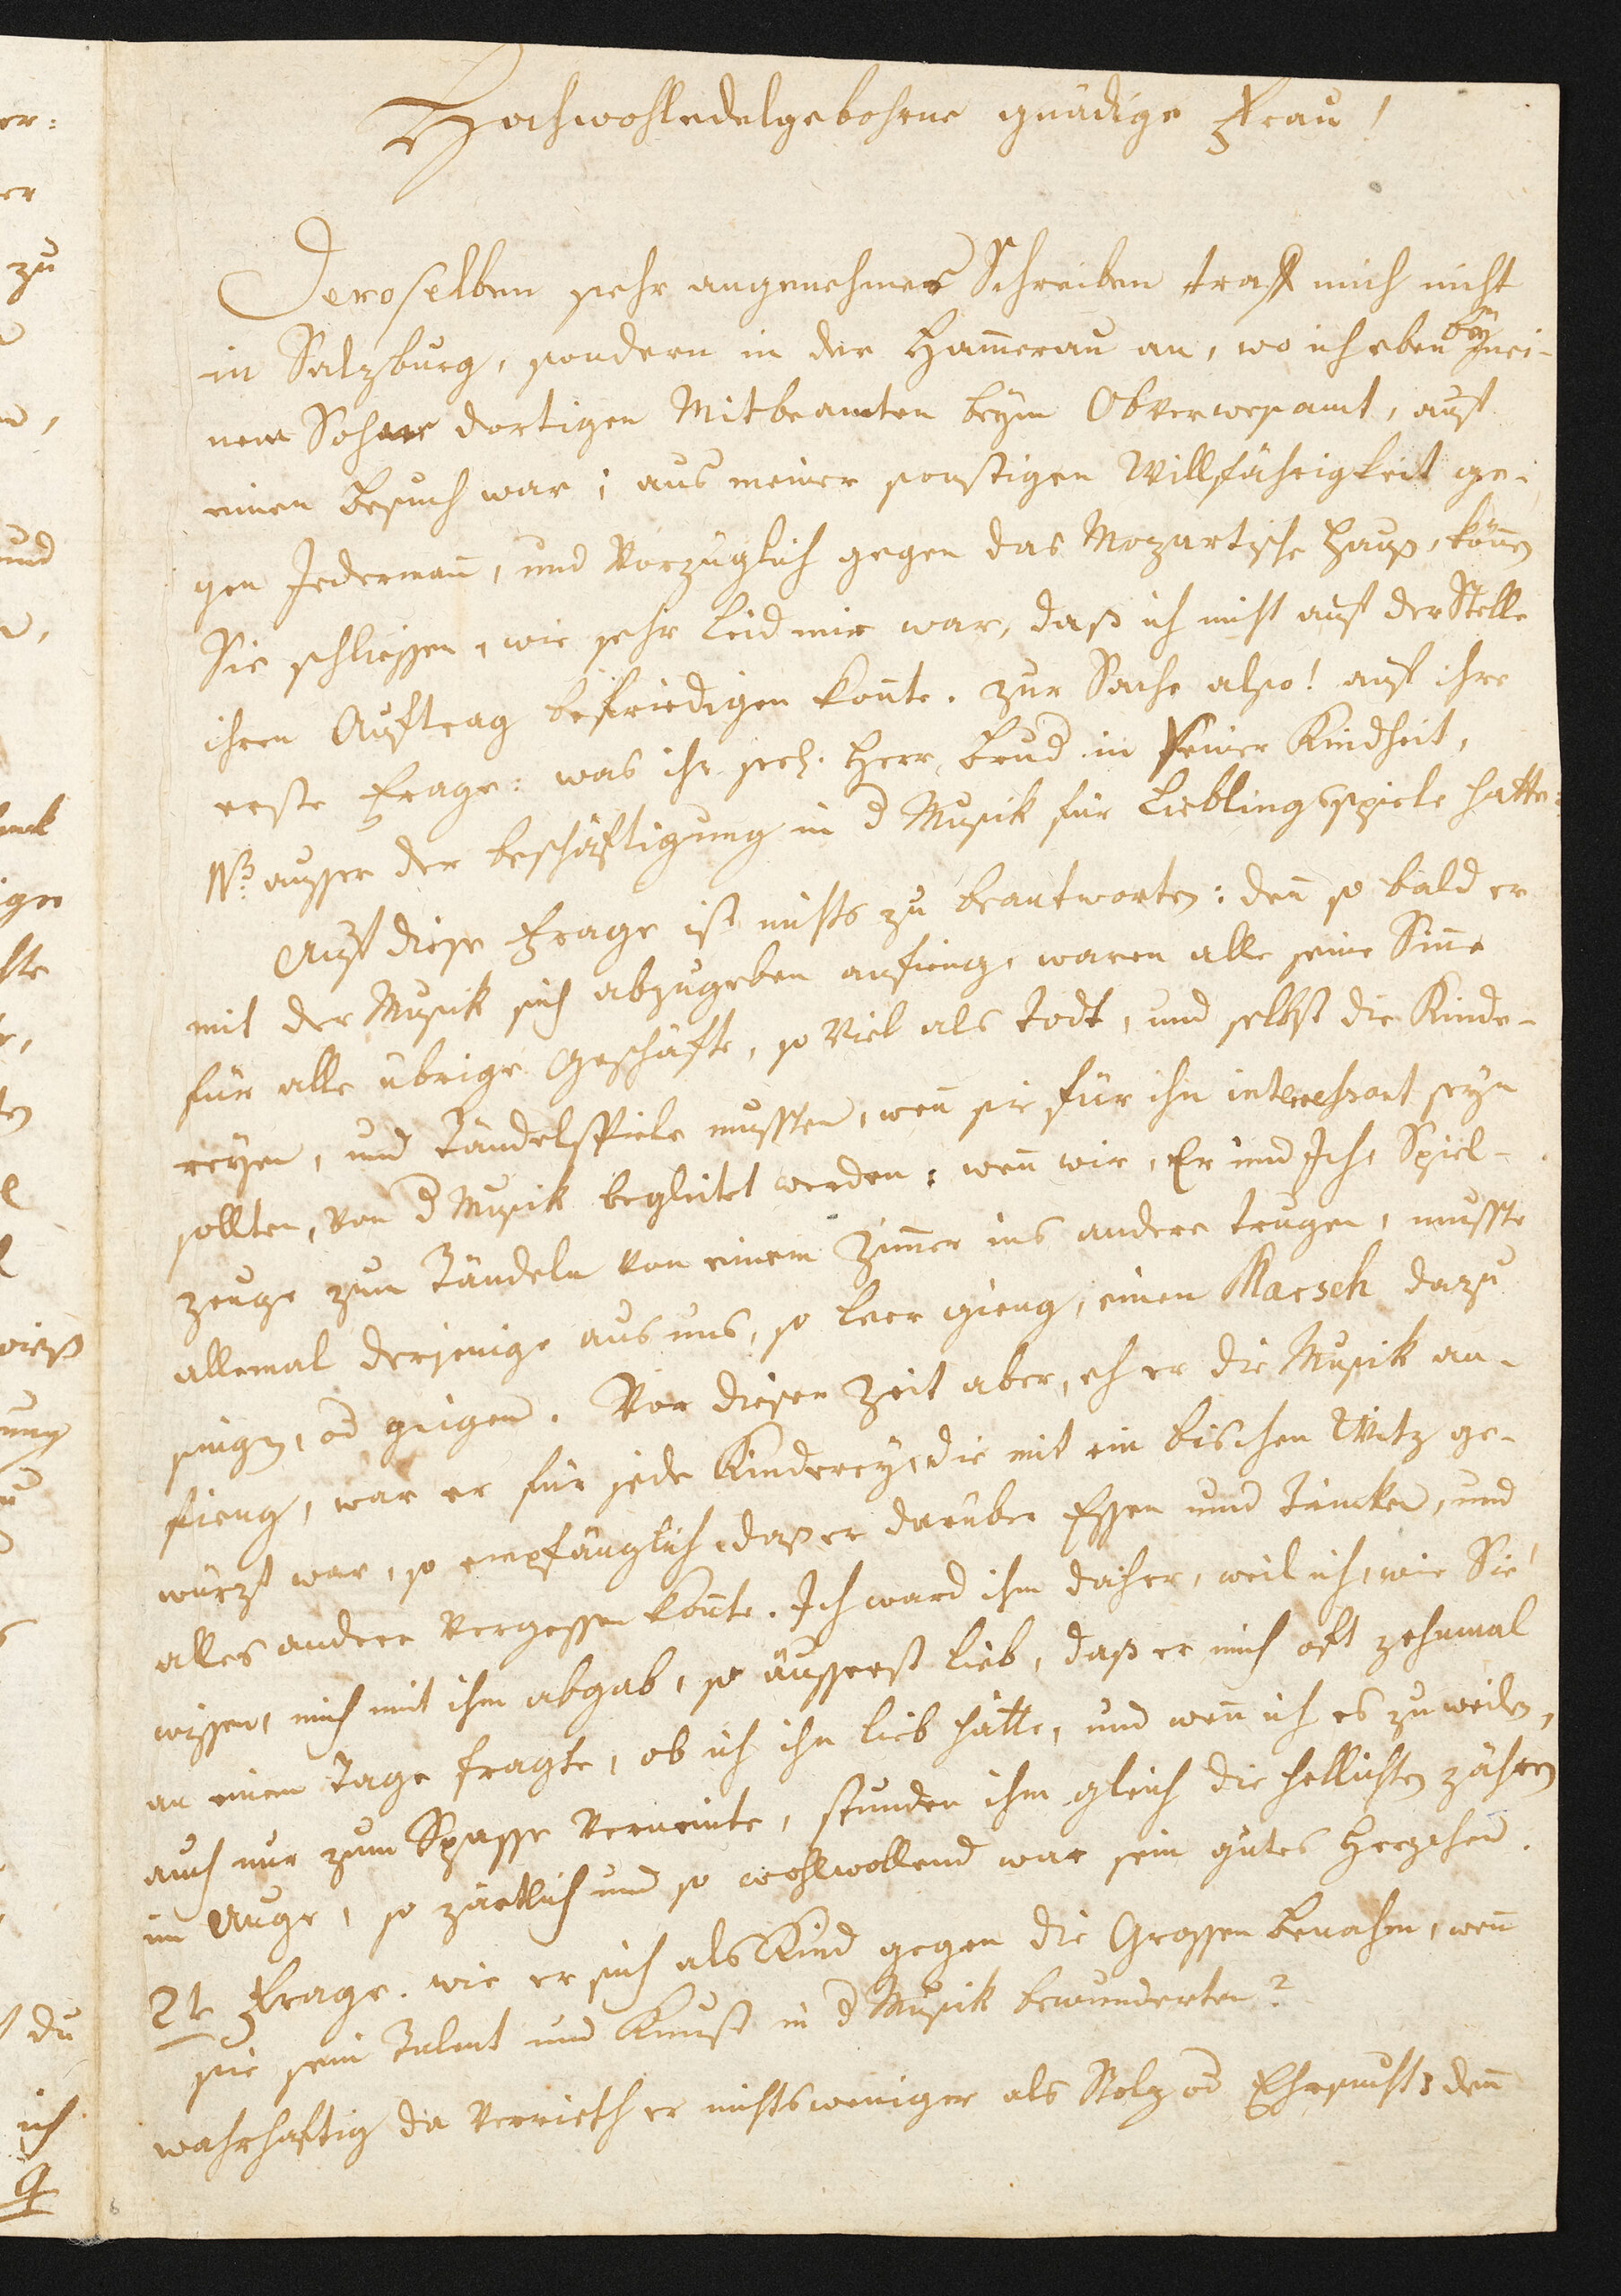 Hochwohledelgebohrne gnädige Frau!
Deroselben sehr angenehmes Schreiben traff mich nicht
in Salzburg, sondern in der Ham̄erau an, wo ich eben bey mei-
nem Sohne dortigen Mitbeamten beym Obverwesamt, auf
einen Besuch war; aus meiner sonstigen Willfährigkeit ge-
gen Jederman̄, und Vorzüglich gegen das Mozartische Hauß, kön̄en
Sie schliessen, wie sehr Leid mir war, daß ich nicht auf der Stelle
ihren Auftrag befriedigen kon̄te. Zur Sache also! auf ihre
erste Frage: was ihr seel. Herr Brud in seiner Kindheit,
NB: ausser der beschäftigung in d Musik für Lieblingsspiele hatte:
Auf diese Frage ist nichts zu beantworten: den̄ so bald er
mit der Musik sich abzugeben anfieng, waren alle seine Sin̄e
für alle übrige Geschäfte, so Viel als todt, und selbst die Kinde-
reyen, und Tändelspiele mussten, wen̄ sie für ihn interessant seyn
sollten, von d Musik begleitet werden: wen̄ wir, Er und Ich, Spiel-
zeuge zum Tändeln von einem Zim̄er ins andere trugen, musste
allemal derjenige aus uns, so leer gieng, einen Marsch dazu
singen, od geigen. Vor dieser Zeit aber, eh er die Musik an-
fieng, war er für jede Kinderey, die mit ein bischen Witz ge-
würzt war, so empfänglich, daß er darüber Essen und Trincken, und
alles andere Vergessen kon̄te. Ich ward ihm daher, weil ich, wie Sie
wissen, mich mit ihm abgab, so äusserst lieb, daß er mich oft zehnmal
an einem Tage fragte, ob ich ihn lieb hätte, und wen̄ ich es zuweilen,
auch nur zum Spasse Verneinte, stunden ihm gleich die hellichten zähren
im Auge, so zärtlich und so wohlwollend war sein gutes Herzchen.
2te Frage. wie er sich als Kind gegen die Grossen benahm, wen̄
sie sein Talent und Kunst in d Musik bewunderten?
wahrhaftig da Verrieth er nichtsweniger als Stolz od Ehrsucht: den̄